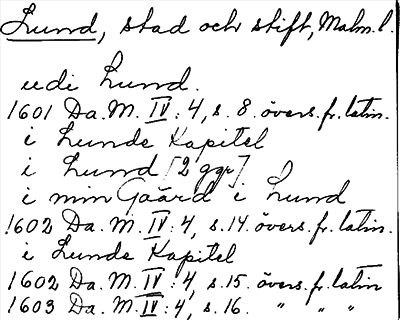 Lund, stad och stift, Malm. l.
udi Lund.
1601 Da. M. IV: 4, s. 8. övers. fr. latin.
i Lunde Kapitel
i Lund [2 ggr]
i min Gaard i Lund
1602 Da. M. IV: 4, s. 14. övers. fr. latin.
i Lunde Kapitel
1602 Da. M. IV: 4, s. 15. övers. fr. latin
1603 Da. M. IV: 4, s. 16. " " "